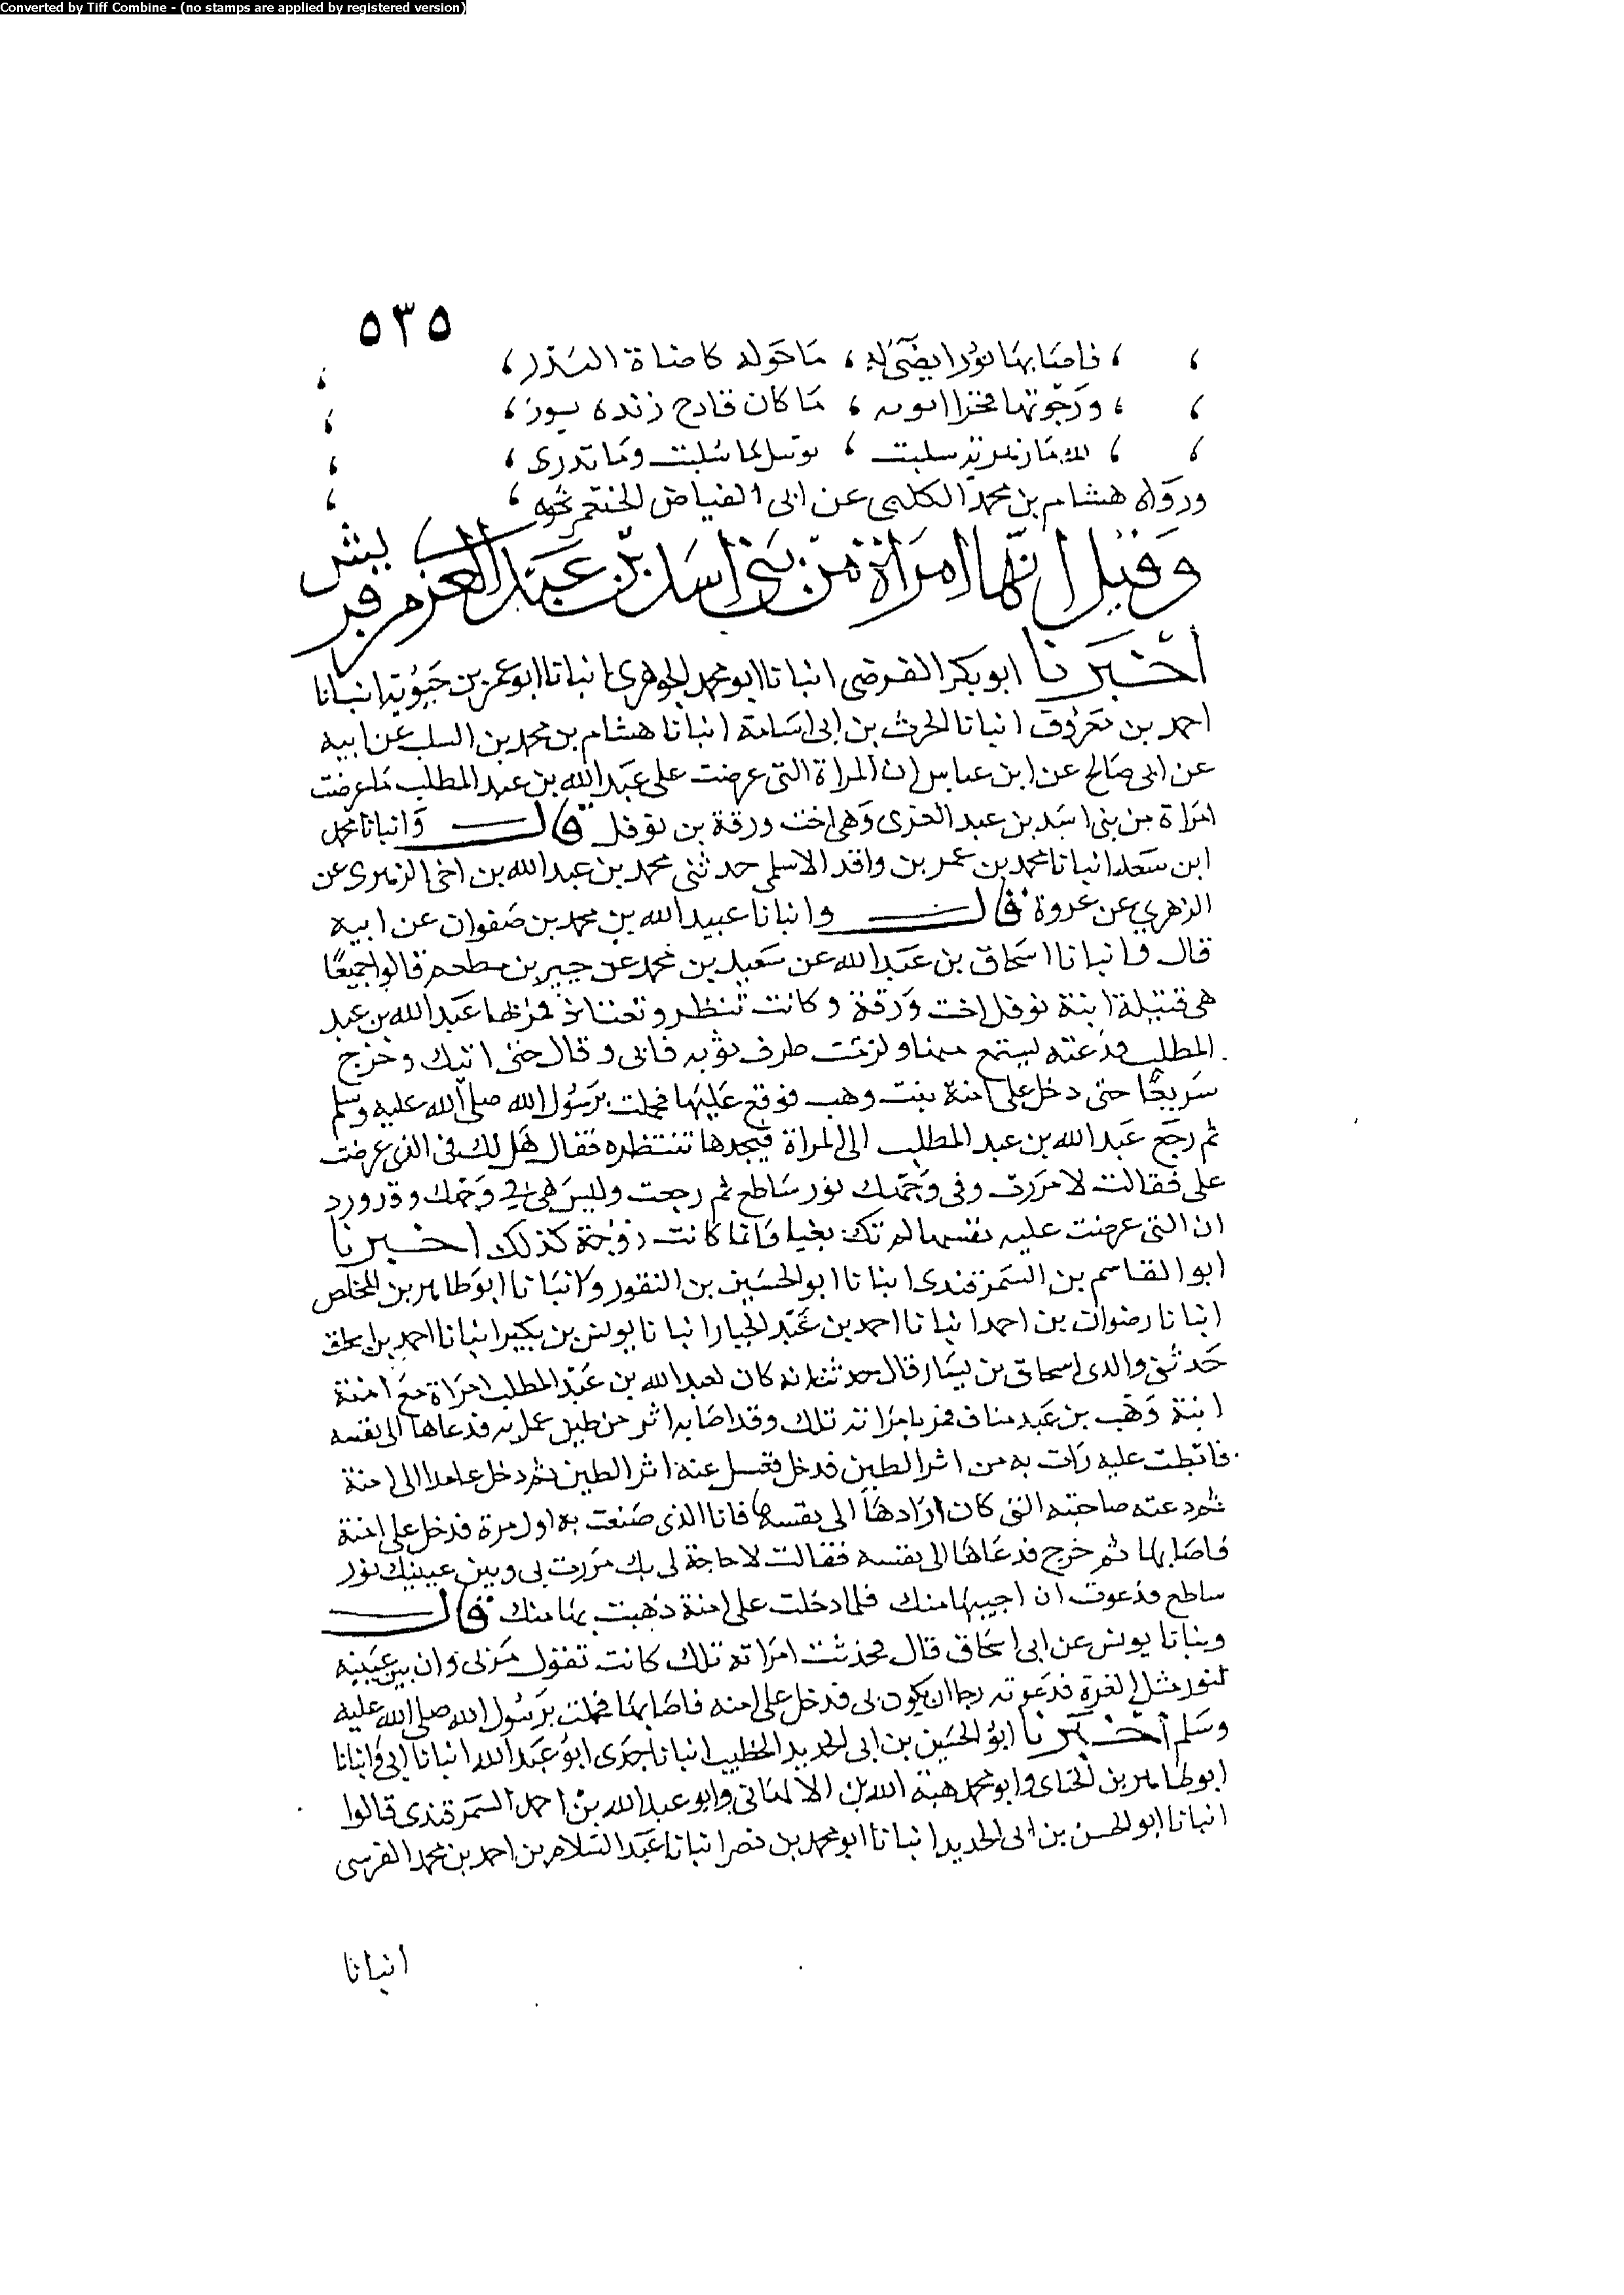 Converted by Tiff Combine - (no stamps are applied by registered version)
٥٣٥
، ، فاصابها نورا يضئ له ، ما حوله كاضاة البدر ،
، ، ورجوتها فخرا ابوء به ، ما كان قادح زنده يور ،
، ، لله ما زهرية سلبت ، ثوبيك ما سلبت وما تدرى ،
ورواه هشام بن محمد الكلبى عن ابى الفياض الخثعمى نحوه ،
وقيل انها امراة من بنى اسد بن عبد العزى قريش
اخبرنا ابو بكر الفرضى انبانا ابو محمد الجوهرى انبانا ابو عمر بن حيويه انبانا
احمد بن معروف انبانا الحرث بن ابى اسامة انبانا هشام بن محمد بن السلب عن ابيه
عن ابى صالح عن ابن عباس ان المراة التى عرضت على عبد الله بن عبد المطلب ما عرضت
امراة من بنى اسد بن عبد العزى وهى اخت ورقة بن نوفل قال وانبانا محمد
ابن سعد انبانا محمد بن عمر بن واقد الاسلمى حدثنى محمد بن عبد الله بن اخى الزهرى عن
الزهرى عن عروة قال وانبانا عبيد الله بن محمد بن صفوان عن ابيه
قال وانبانا اسحاق بن عبد الله عن سعيد بن محمد عن جبير بن مطعم قالوا جميعا
هى قتيلة ابنة نوفل اخت ورقة وكانت تنظر وتعتاف فمر بها عبد الله بن عبد
المطلب فدعته ليستمتع منها ولزمت طرف ثوبه فابى وقال حتى اتيك وخرج
سريعا حتى دخل على امنة بنت وهب فوقع عليها فحملت برسول الله صلى الله عليه وسلم
ثم رجع عبد الله بن عبد المطلب الى المراة فيجدها تنتظره فقال هل لك فى الذى عرضت
على فقالت لا مررت وفى وجهك نور ساطع ثم رجعت وليس هى فى وجهك وقد ورد
ان التى عرضت عليه نفسها لم تك بغيا وانما كانت زوجة كذلك اخبرنا
ابو القاسم بن السمرقندى انبانا ابو الحسين بن النقور وانبانا ابو طاهر بن المخلص
انبانا رضوان بن احمد انبانا احمد بن عبد الجبار انبانا يونس بن بكير انبانا احمد بن اسحق
حدثنى والدى اسحاق بن يسار قال حدثت انه كان لعبد الله بن عبد المطلب امراة مع امنة
ابنة وهب بن عبد مناف فمر بامراته تلك وقد اصابه اثر من طين عمل به فدعاها الى نفسه
فابطت عليه رات به من اثر الطين فدخل فغسل عنه اثر الطين ثم دخل عامدا الى امنة
ثم دعته صاحبته التى كان ارادها الى نفسها فابا الذى صنعت به اول مرة فدخل على امنة
فاصابها ثم خرج فدعاها الى نفسه فقالت لا حاجة لى بك مررت بى وبين عينيك نور
ساطع فدعوت ان اجيبها منك فلما دخلت على امنة ذهبت بها منك قال
وبنانا يونس عن ابى اسحاق قال فحدثت امراته تلك كانت تقول مر بى وان بين عينيه
لنور مثل الغرة فدعوته رجا ان يكون لى فدخل على امنه فاصابها فحملت برسول الله صلى الله عليه
وسلم اخبرنا ابو الحسين بن ابى الحديد الخطيب انبانا جدى ابو عبد الله انبانا ابى وانبانا
ابو طاهر بن الحناى وابو محمد هبة الله بن الاكفانى وابو عبد الله بن احمد السمرقندى قالوا
انبانا ابو الحسن بن ابى الحديد انبانا ابو محمد بن نصر انبانا عبد السلام بن احمد بن محمد القرسى
انبانا